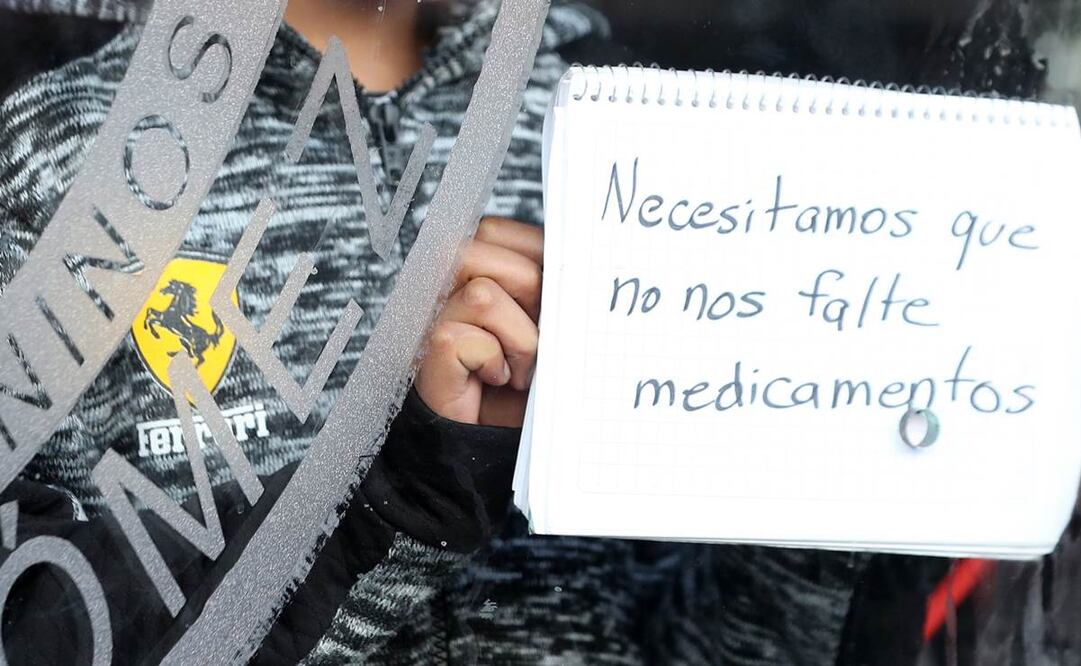 VINOS
ÓMEZ
Ferrari
Necesitamos que
no nos falte
medicamentos